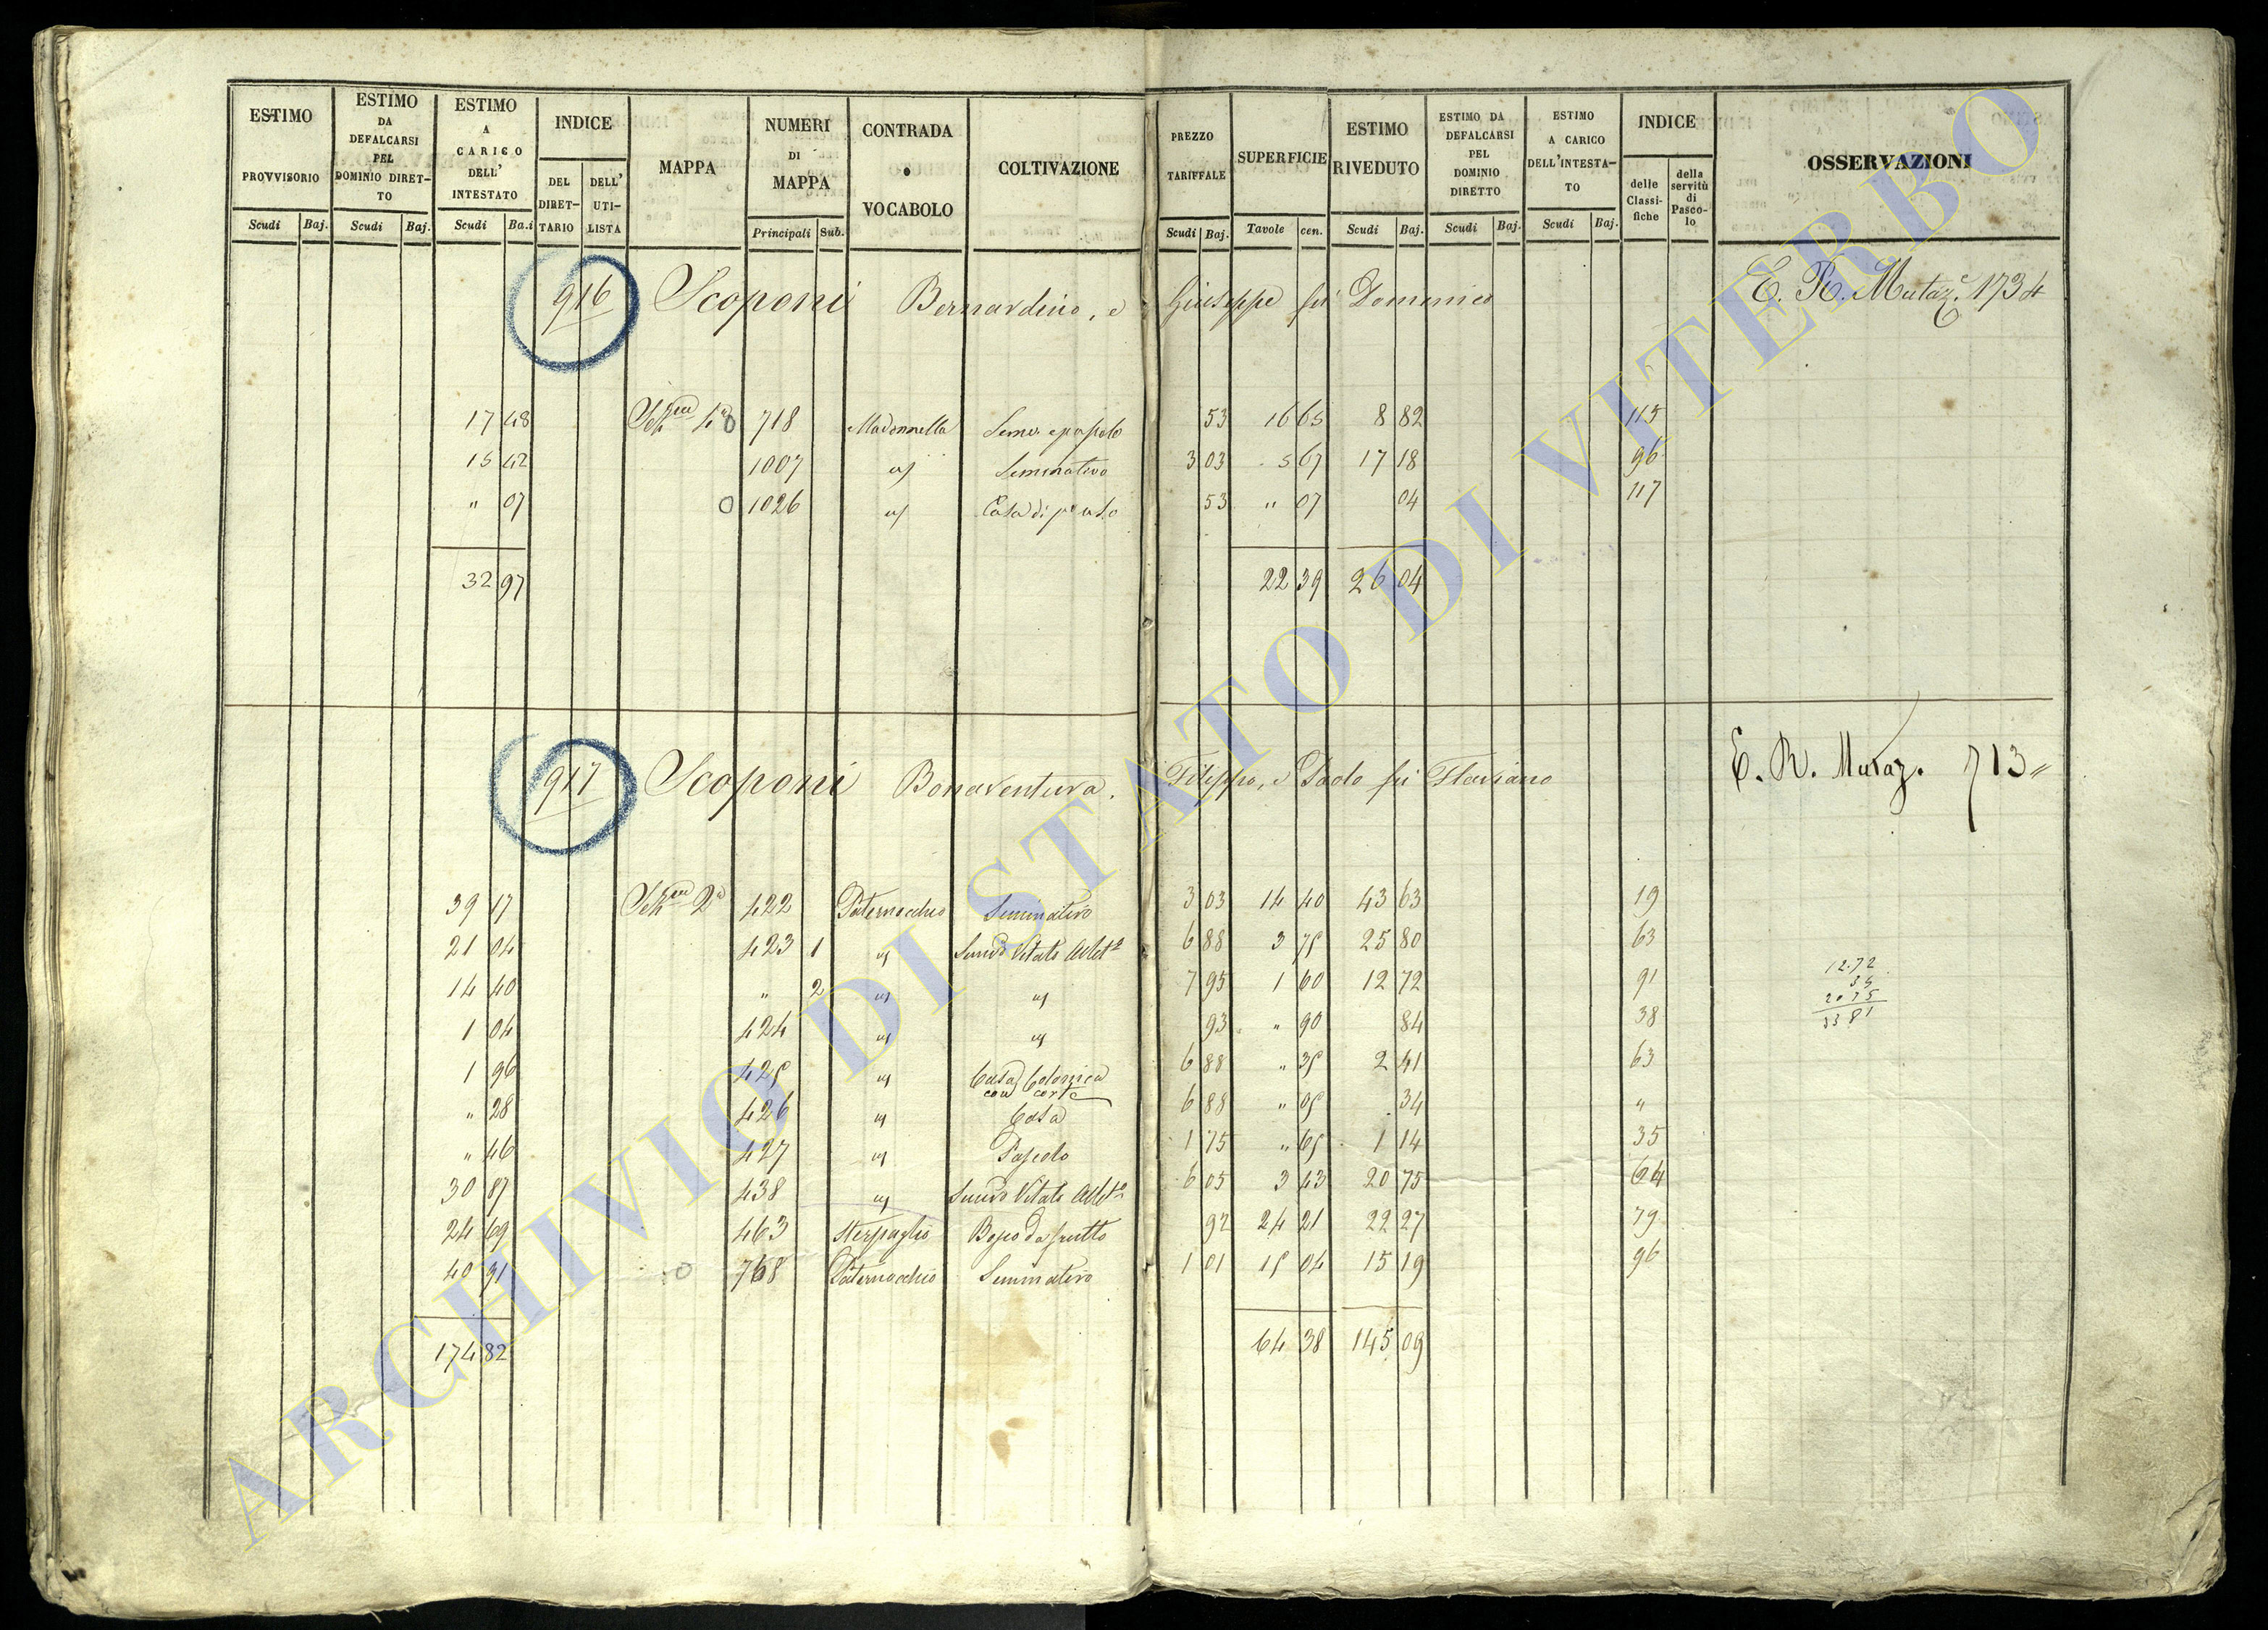 ESTIMO PROVVISORIO | ESTIMO DA DEFALCARSI PEL DOMINIO DIRETTO | ESTIMO A CARICO DELL' INTESTATO | INDICE | MAPPA | NUMERI DI MAPPA | CONTRADA o VOCABOLO | COLTIVAZIONE | PREZZO TARIFFALE | SUPERFICIE | ESTIMO RIVEDUTO | ESTIMO DA DEFALCARSI PEL DOMINIO DIRETTO | ESTIMO A CARICO DELL'INTESTATO | INDICE | OSSERVAZIONI
DEL DIRETTARIO | DELL' UTILISTA | delle Classifiche | della servitù di Pascolo
Scudi | Baj. | Scudi | Baj. | Scudi | Ba.i | Principali | Sub. | Scudi | Baj. | Tavole | cen. | Scudi | Baj. | Scudi | Baj. | Scudi | Baj.
916 Scoponi Bernardino, e Giuseppe fu Domenico E. R. Mutaz.e 1734
17 48 718 Madonnella 53 16 65 8 82 115
15 42 1007 Seminativo 3 03 5 67 17 18 96
" 07 0 1026 Casa di p° uso 53 " 07 04 117
32 97 22 39 26 04
917 Scoponi Bonaventura, Filippo, e Paolo fu Flaviano E. R. Mutaz. 713"
39 17 2a 422 Paternocchio Seminativo 3 03 14 40 43 63 19
21 04 423 1 Vitato 6 88 3 75 25 80 63
14 40 " 2 7 95 1 60 12 72 91
1 04 424 93 " 90 84 38
1 96 425 Casa Colonica con corte 6 88 " 35 2 41 63
" 28 426 Casa 6 88 " 05 34 "
" 46 427 Pascolo 1 75 " 65 1 14 35
30 87 438 Vitato 6 05 3 43 20 75 64
24 69 463 Sterpaglio Bosco da frutto 92 24 21 22 27 79
40 91 0 768 Paternocchio Seminativo 1 01 15 04 15 19 96
174 82 64 38 145 09
12.72
34
20 75
33 81
ARCHIVIO DI STATO DI VITERBO